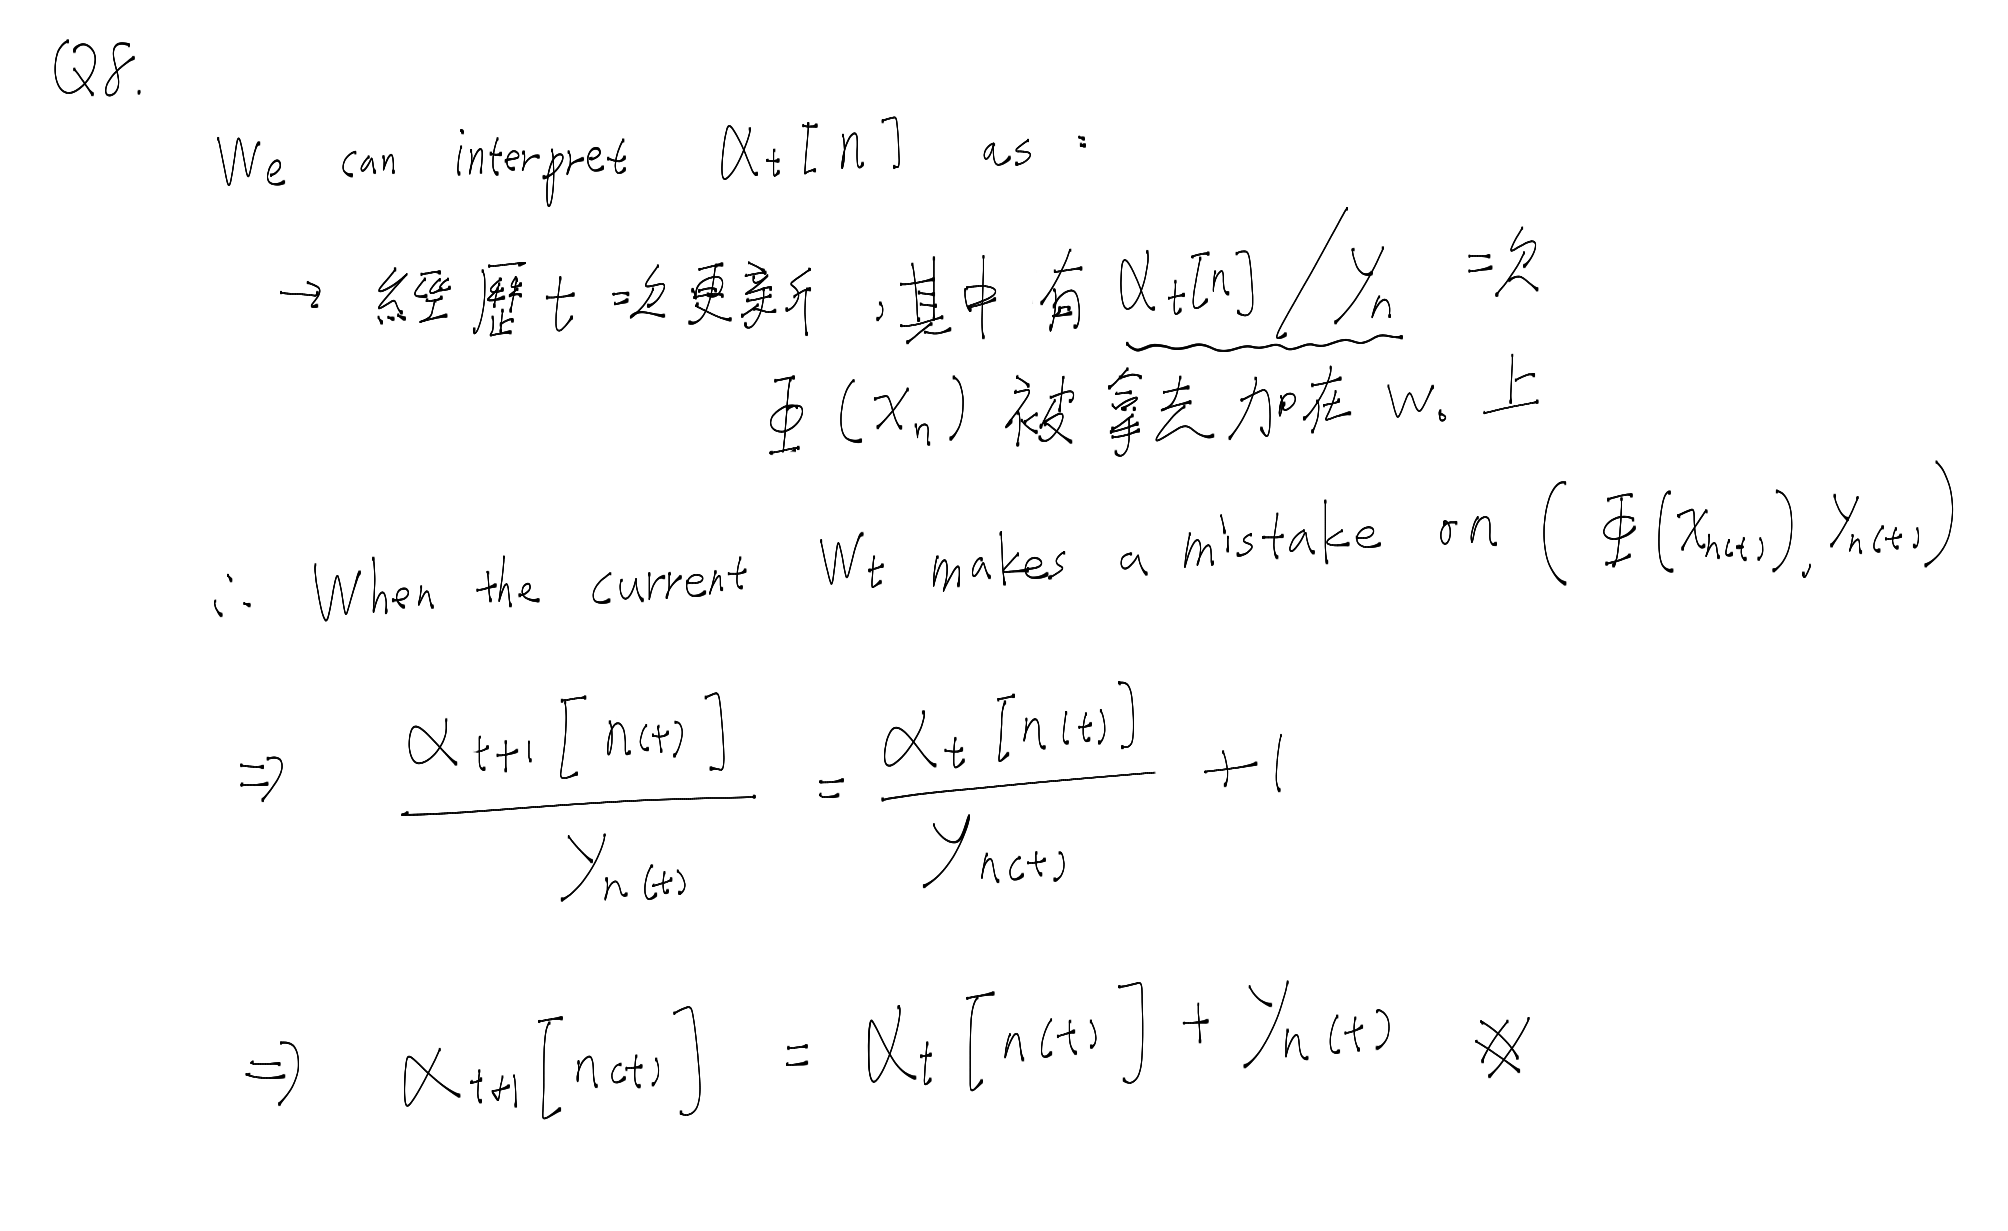 Q8.
We can interpret α_t[n] as :
→ 經歷 t 次更新 , 其中有 α_t[n] / y_n 次
Φ(x_n) 被拿去加在 w₀ 上
∴ When the current W_t makes a mistake on ( Φ(x_{n(t)}), y_{n(t)} )
⇒ α_{t+1}[n(t)] / y_{n(t)} = α_t[n(t)] / y_{n(t)} + 1
⇒ α_{t+1}[n(t)] = α_t[n(t)] + y_{n(t)} ※